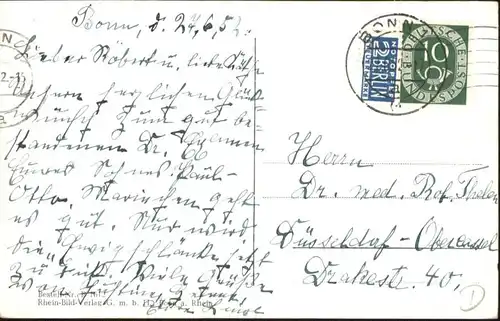 Bonn, d. 24.6.52.
Lieber Robert u. liebe Käthe
unsern herzlichen Glück-
wunsch zum gut be-
standenen Dr. Examen
Eueres Sohnes Paul-
Otto. Mariechen geht
es gut. Nur wird
die "Ewigschlanke" jetzt
zu dick. Viele Grüße
von
Bestell-Nr.
Rhein-Bild-Verlag G. m. b. H. Bonn a. Rhein
BONN
NOTOPFER
2 BERLIN
STEUERMARKE
DEUTSCHE BUNDESPOST
10
Herrn
Dr. med. Rob. Thelen
Düsseldorf-Obercassel
Drakestr. 40.
D